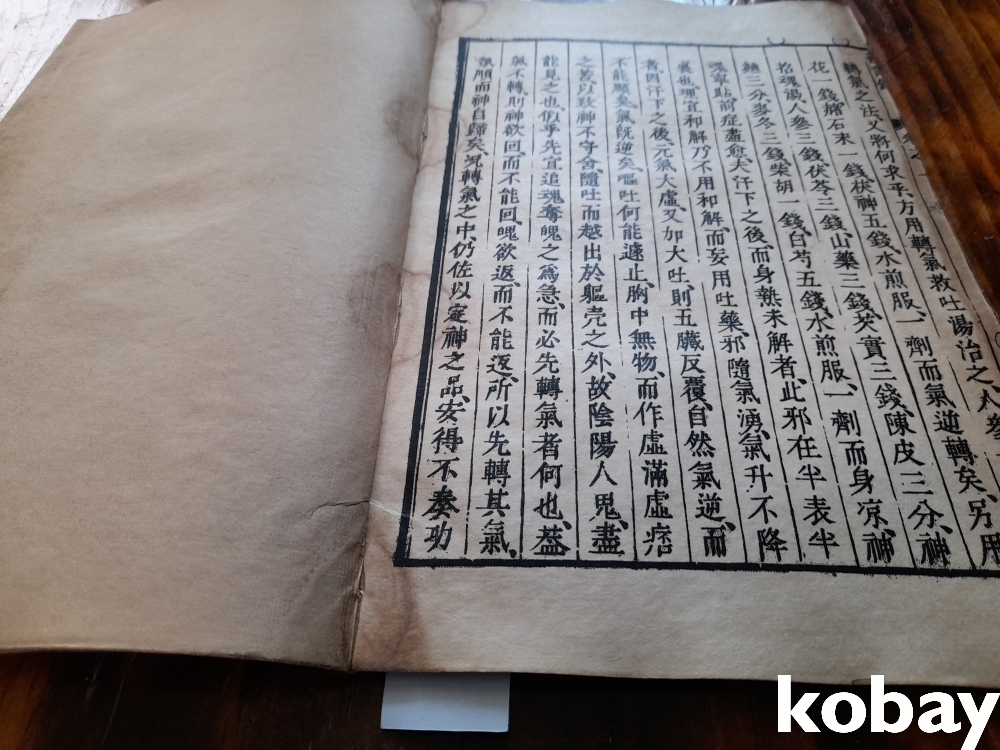 轉氣之法又將何求乎、方用轉氣救吐湯治之、人參
花一錢、赭石末一錢、茯神五錢、水煎服、一劑而氣逆轉矣、另用
招魂湯、人參三錢、茯苓三錢、山藥三錢、芡實三錢、陳皮三分、神
麯三分、麥冬三錢、柴胡一錢、白芍五錢、水煎服、一劑而身凉、神
魂寧貼、前症盡愈、夫汗下之後、而身熱未解者、此邪在半表半
裏也、理宜和解、乃不用和解、而妄用吐藥、邪隨氣湧、氣升不降
者、因汗下之後、元氣大虛、又加大吐、則五臟反覆、自然氣逆、而
不能順矣、氣既逆矣、嘔吐何能遽止、胸中無物、而作虛滿虛痞
之 以致神不守舍、隨吐而越出於軀壳之外、故陰陽人鬼、盡
能見之也、似乎先宜追魂奪魄之為急、而必先轉氣者何也、葢
氣不轉、則神欲回、而不能回、魄欲返、而不能返、所以先轉其氣、
氣順而神自歸矣、況轉氣之中、仍佐以定神之品、安得不奏功
kobay